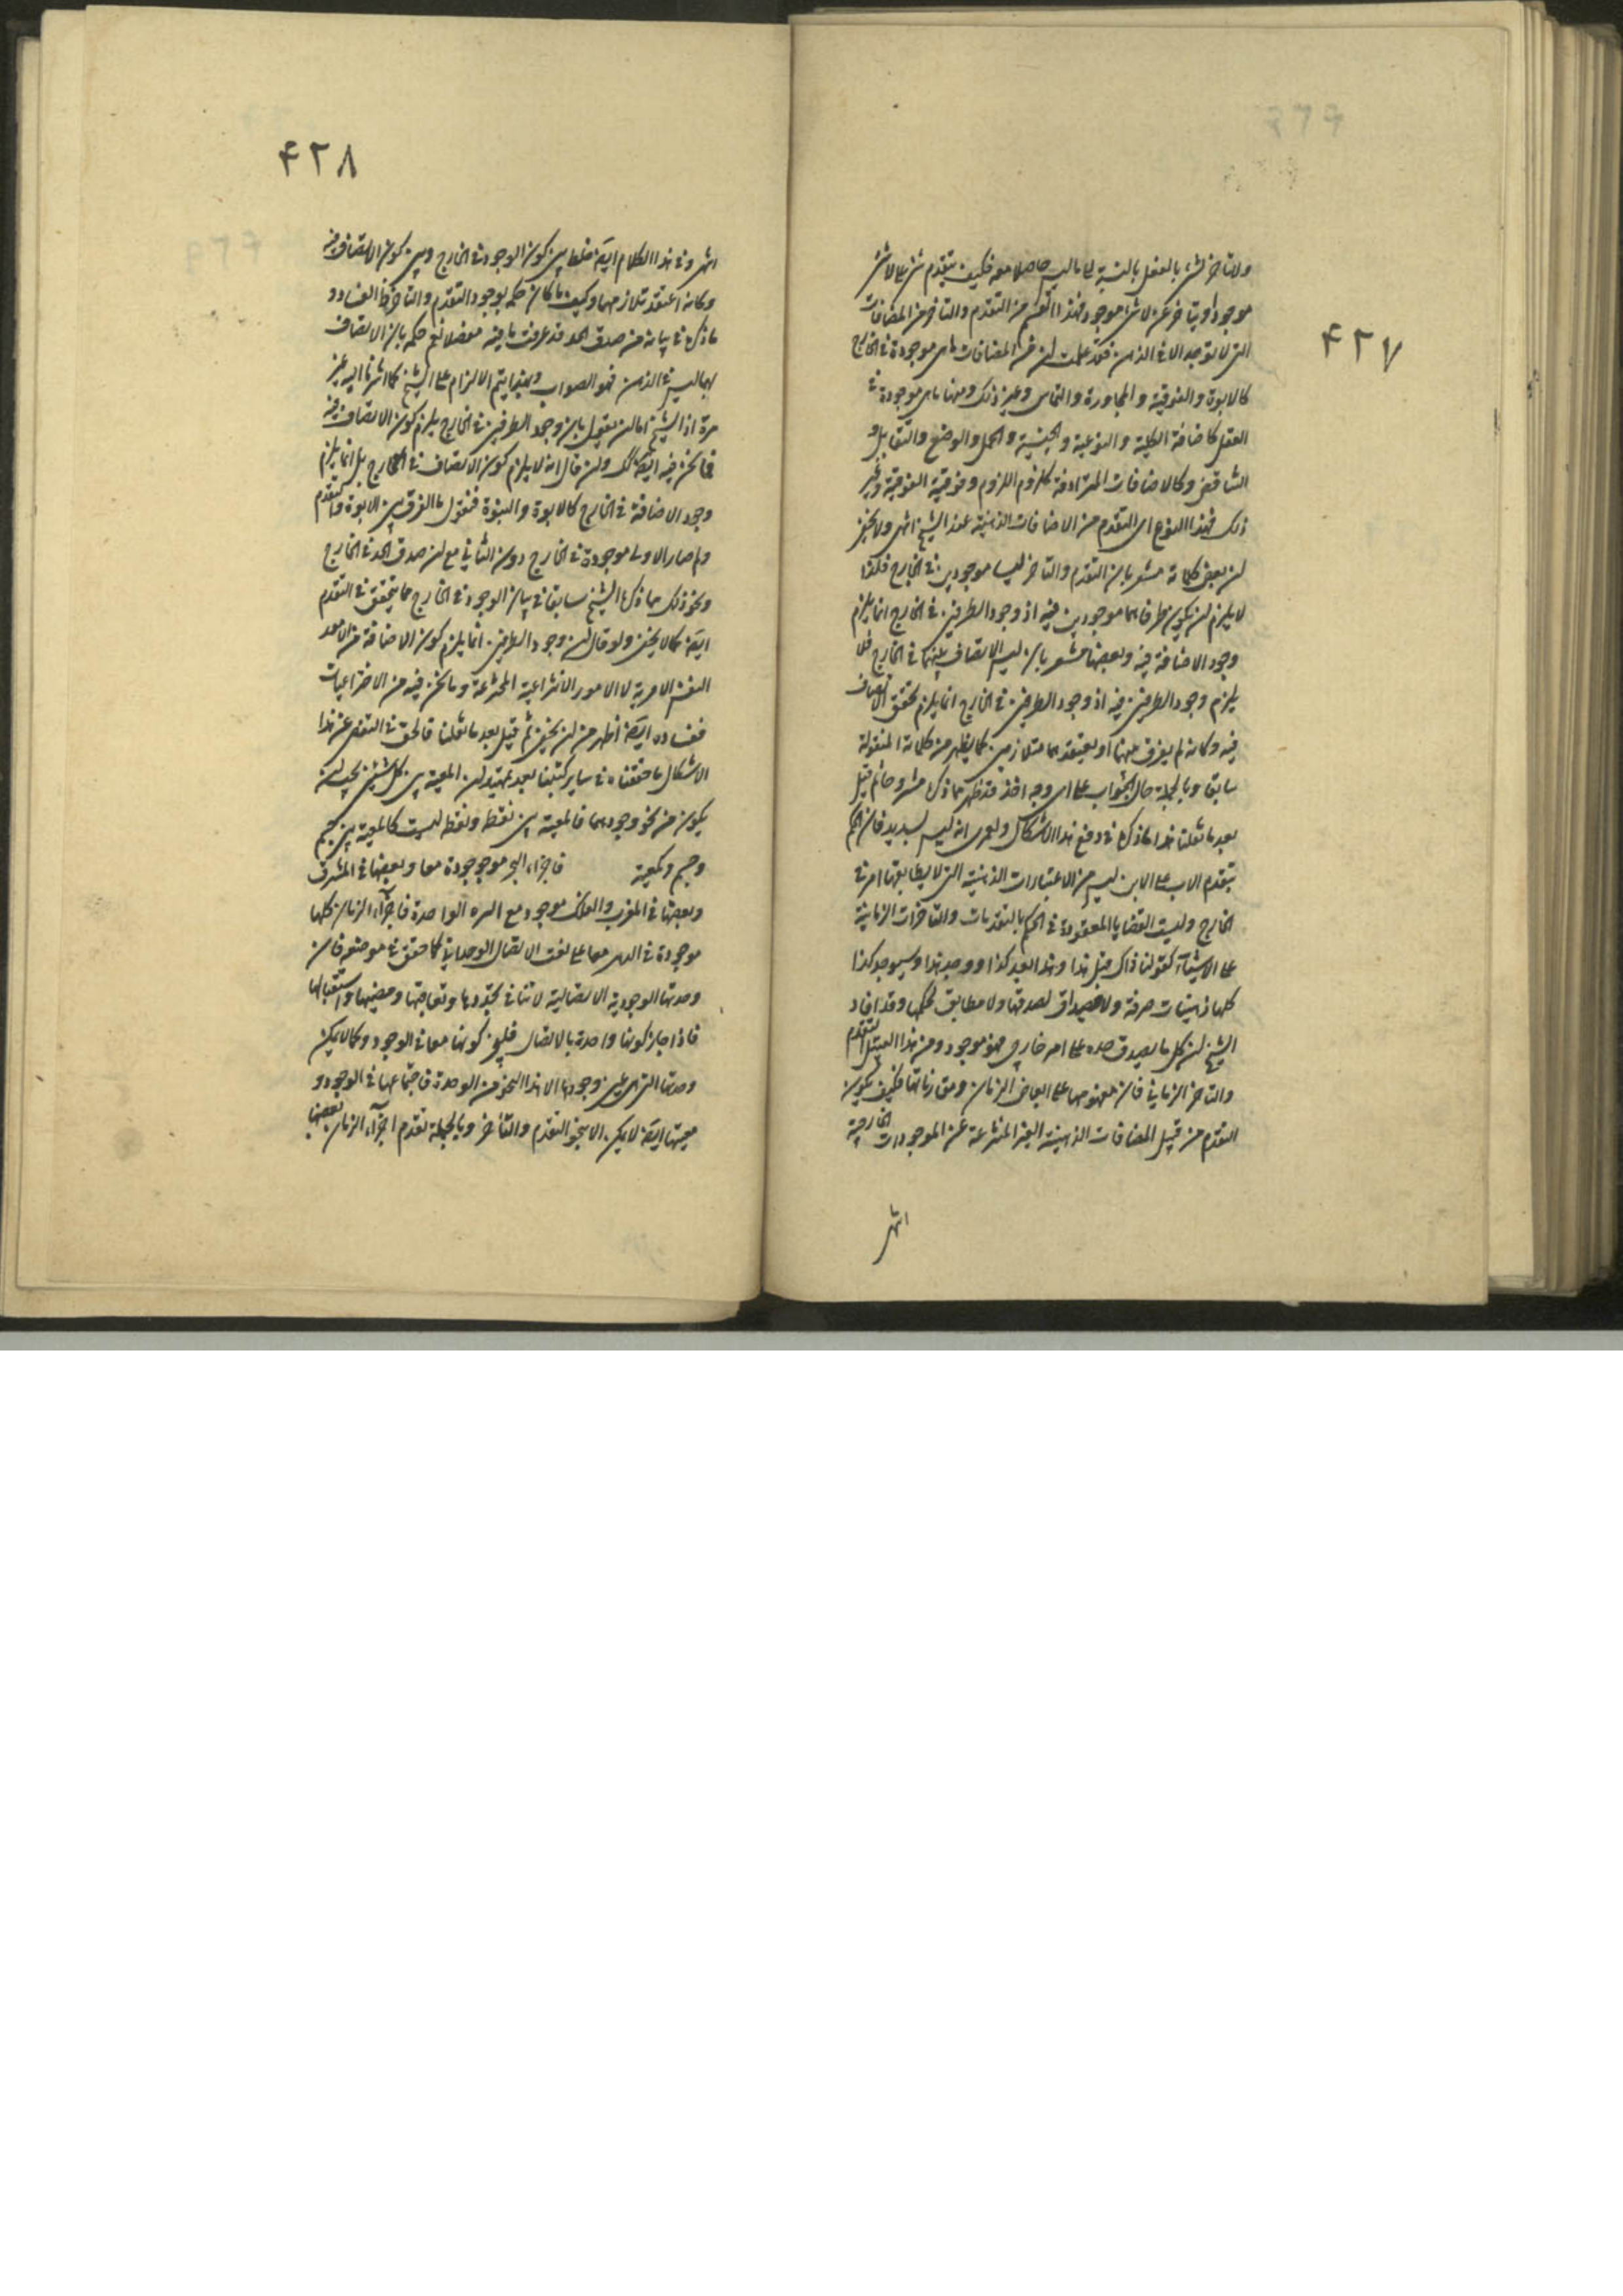 ۴۲۷
ولا تاخر لشیء بالفعل بالنسبة الی ما لیس حاصلا معه فکیف یتقدم شیء علی لا شیء
موجودا و یتاخر عن لا شیء موجود فهذا القسم من التقدم والتاخر من المضافات
التی لا توجد الا فی الذهن فقد علمت ان من المضافات ما هی موجودة فی الخارج
کالابوة والفوقیة والمجاورة والتماس وغیر ذلک ومنها ما هی موجودة فی
العقل کاضافة الکلیة والنوعیة والجنسیة والحمل والوضع والتقابل و
التناقض وکالاضافات المترادفة کلزوم اللزوم وفوقیة الفوقیة وغیر
ذلک فهذا النوع ای التقدم من الاضافات الذهنیة عند الشیخ انتهی ولا یخفی
ان بعض کلماته مشعر بان التقدم والتاخر لیسا موجودین فی الخارج فلذا
لا یلزم ان یکون طرفاهما موجودین فیه اذ وجود الطرفین فی الخارج انما یلزم
وجود الاضافة فیه وبعضها مشعر بان لیس الاتصاف بهما فی الخارج فلا
یلزم وجود الطرفین فیه اذ وجود الطرفین فی الخارج انما یلزم تحقق الاتصاف
فیه وکانه لم یفرق بینهما او یعتقدهما متلازمین کما یظهر من کلماته المنقولة
سابقا وبالجملة حال الجواب علی ای وجه اخذ قد ظهر مما ذکر مشروحا ثم قیل
بعد ما نقلنا هذا ما ذکره فی دفع هذا الاشکال ولعمری انه لیس بسدید فان الحکم
بتقدم الاب علی الابن لیس من الاعتبارات الذهنیة التی لا یطابقها امر فی
الخارج ولیست القضایا المعقودة فی الحکم بالتقدمات والتاخرات الزمانیة
علی الاشیآء کقولنا ذاک قبل هذا وهذا بعد کذا ووجد هذا وسیوجد کذا
کلها ذهنیات صرفة ولا مصداق لصدقها ولا مطابق لحکمها وقد افاد
الشیخ ان کل ما یصدق حده علی امر خارجی فهو موجود ومن هذا القبیل التقدم
والتاخر الزمانی فان مفهومهما علی ابعاض الزمان ومقارناتها فکیف یکون
التقدم من قبیل المضافات الذهنیة الغیر المنتزعة عن الموجودات الخارجیة
انتهی
۴۲۸
انتهی وفی هذا الکلام ایضا خلط بین کون الوجود فی الخارج وبین کون الاتصاف فیه
وکانه اعتقد تلازمهما وکیف ما کان حکمه بوجود التقدم والتاخر کذا الفساد و
ما ذکره فی بیانه من صدق الحد قد عرفت ما فیه مفصلا نعم حکمه بان الاتصاف
بهما لیس فی الذهن فهو الصواب وبهذا یتم الالزام علی الشیخ کما اشرنا الیه غیر
مرة اذ الشیخ اما ان یقول بان وجود الطرفین فی الخارج یلزم کون الاتصاف فیه
فما نحن فیه ایضا کذلک وان قال انه لا یلزم کون الاتصاف فی الخارج بل انما یلزم
وجود الاضافة فی الخارج کالابوة والبنوة فنقول ما الفرق بین الابوة والتقدم
ولم صار الاولی موجودة فی الخارج دون الثانی مع ان صدق الحد فی الخارج
ونحو ذلک مما ذکره الشیخ سابقا فی بیان الوجود فی الخارج مما یتحقق فی التقدم
ایضا کما لا یخفی ولو قال ان وجود الطرفین انما یلزم کون الاضافة من الامور
النفس الامریة لا الامور الانتزاعیة المخترعة وما نحن فیه من الاختراعیات
ففساده ایضا اظهر من ان یخفی ثم قیل بعد ما نقلنا فالحق فی التفصی عن هذا
الاشکال ما حققناه فی سایر کتبنا بعد تمهید ان المعیة بین کل شیئین یجب ان
یکون من نحو وجودهما فالمعیة بین نقطة ونقطة لیست کالمعیة بین جسم
وجسم وکمعیة فاجزاء البحر موجودة معا وبعضها فی المشرق
وبعضها فی المغرب والفلک موجود مع الواحدة فاجزآء الزمان کلها
موجودة فی الدهر معا علی نعت الاتصال الوحدانی کما حقق فی موضعه فان
وحدتها الوجودیة الاتصالیة لا تنافی تجددها وتعاقبها ومضیها واستقبالها
فاذا جاز کونها واحدة بالاتصال فلیجز کونها معا فی الوجود وکما لا یمکن
وحدتها التی هی عین وجودها الا هذا النحو من الوحدة فاجتماعها فی الوجود و
معیتها ایضا لا یمکن الا بنحو التقدم والتأخر وبالجملة تقدم اجزآء الزمان بعضها